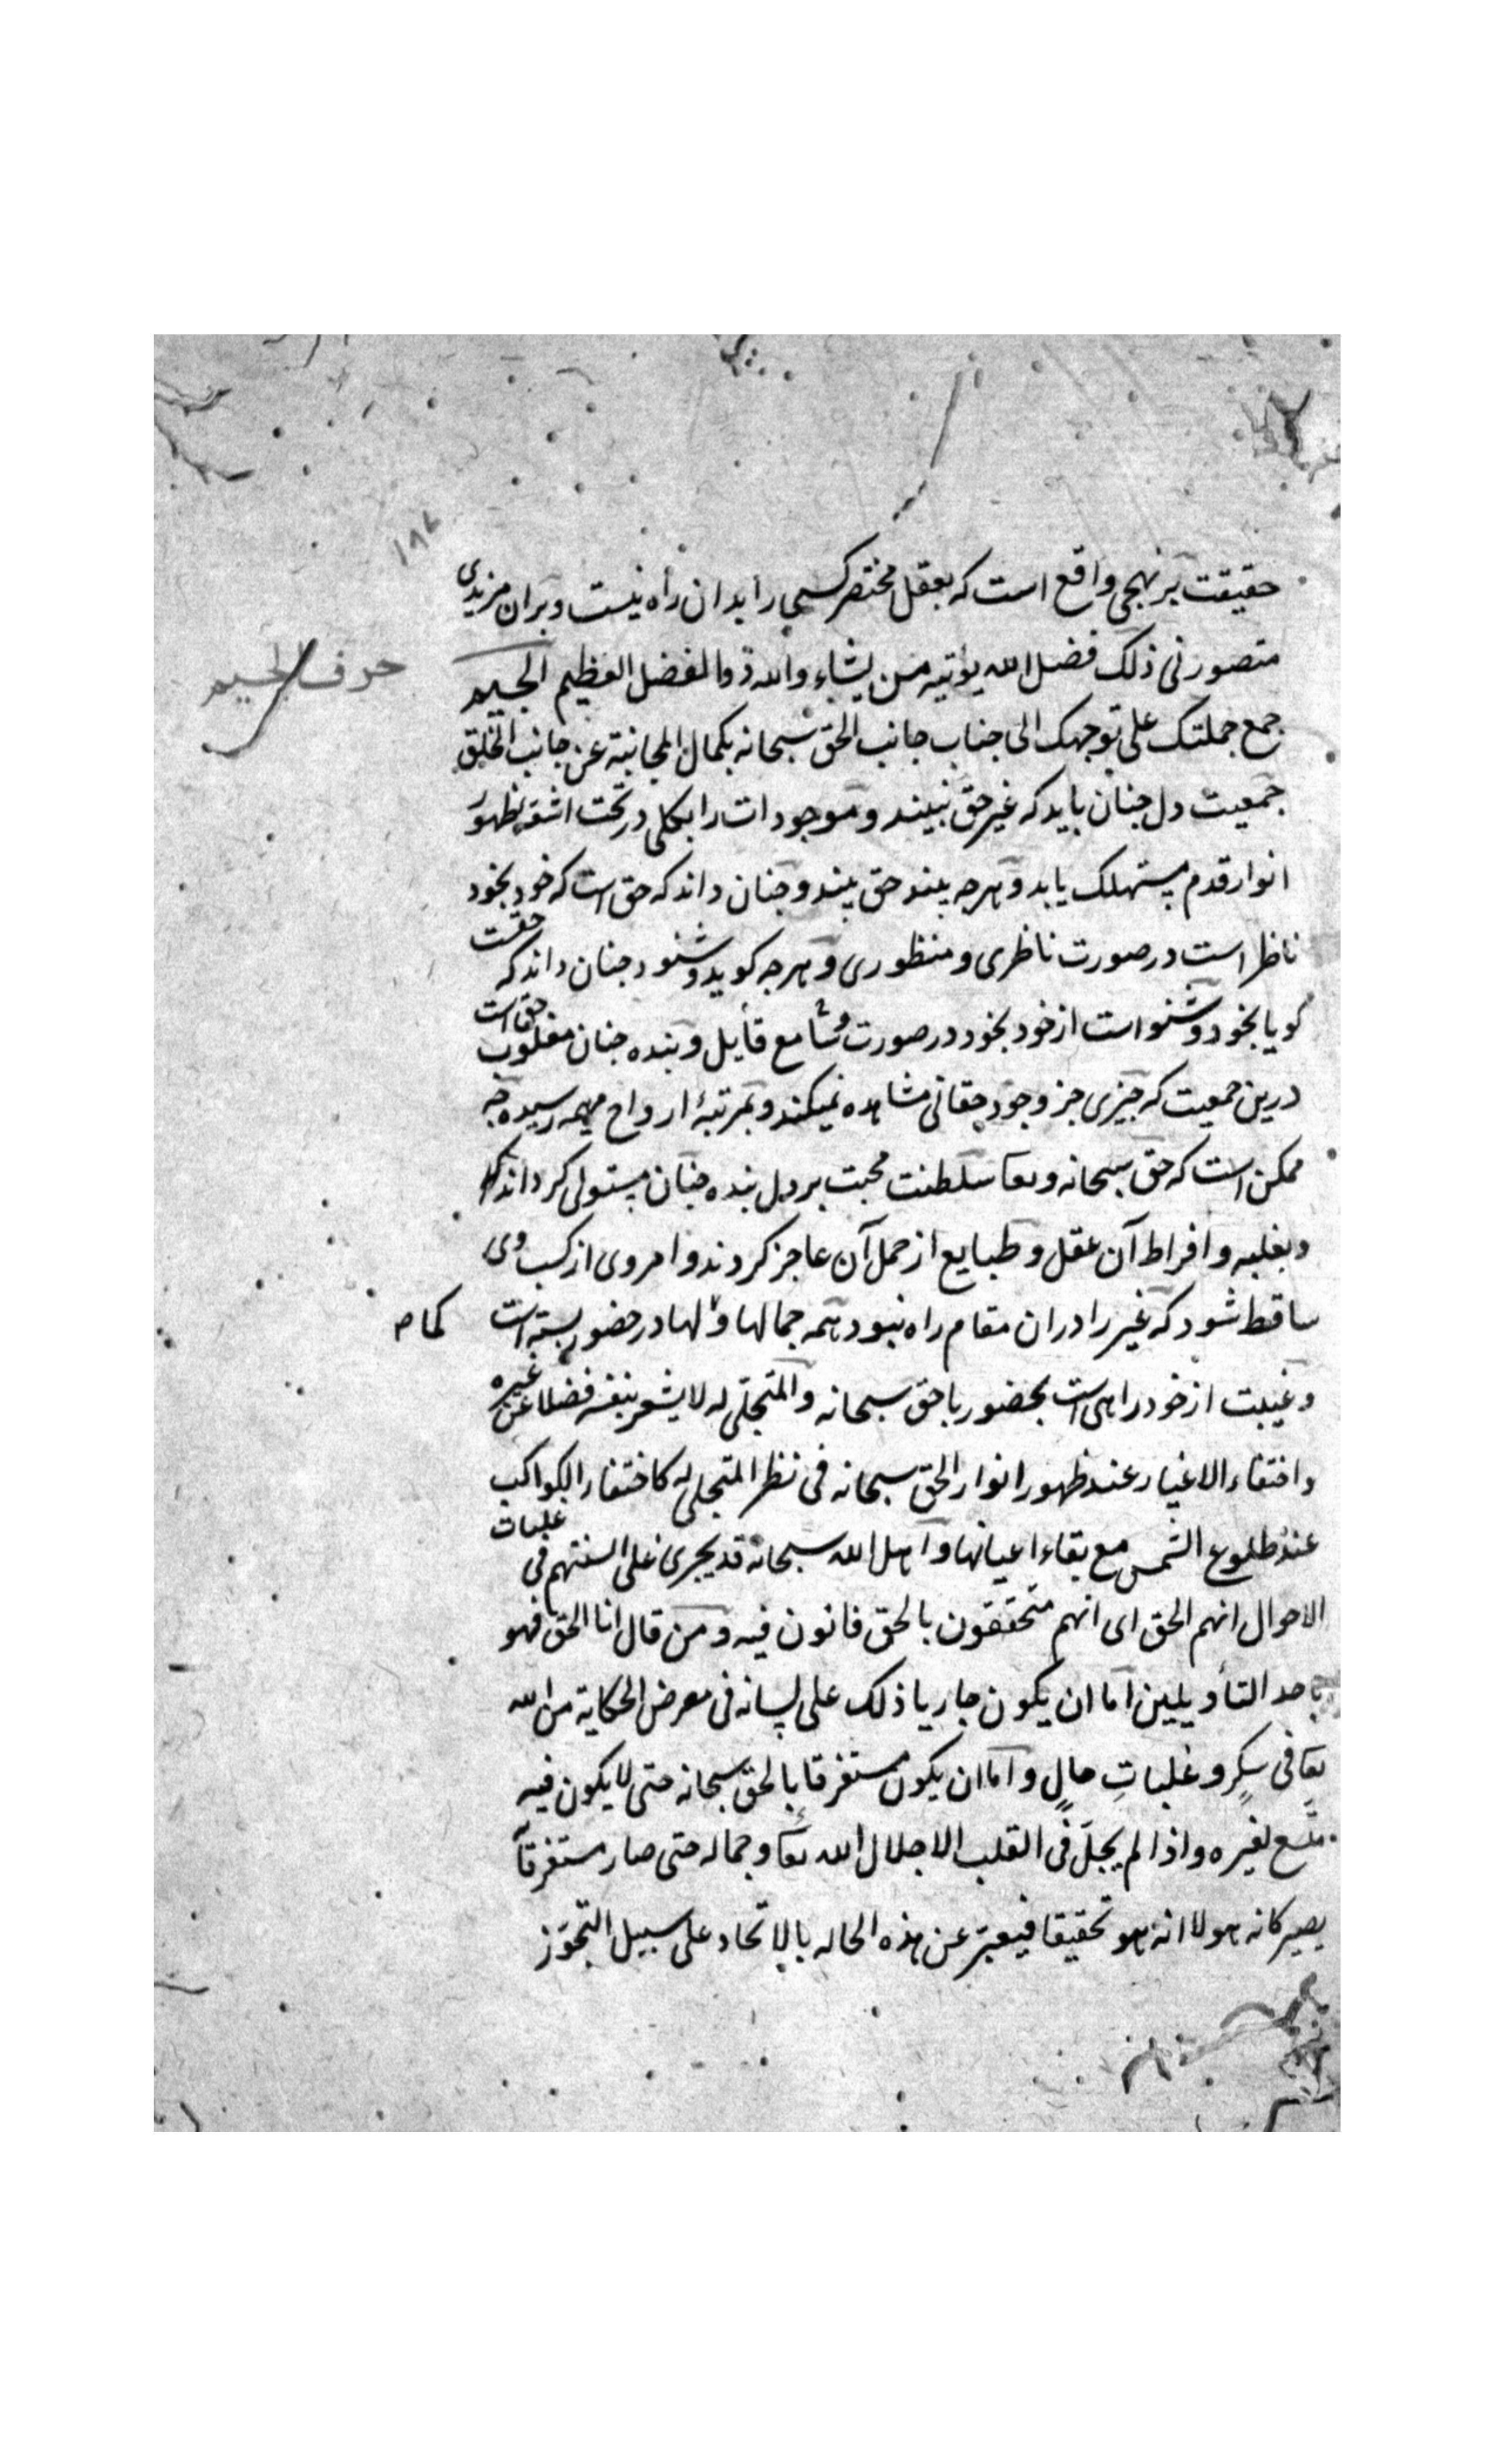 ۱۸۷
حقیقت بر نهجی واقع است که بعقل مختصر کسی را بدان راه نیست و بران مزیدی
متصور نی ذلک فضل الله یؤتیه من یشاء والله ذو الفضل العظیم الجیم
حرف الجیم
جمع جملتک علی توجهک الی جناب جانب الحق سبحانه بکمال المجانبة عن جانب الخلق
جمعیت دل جنان باید که غیر حق نبیند و موجودات را بکلی در تحت اشعه ظهور
انوار قدم مستهلک یابد و هرجه بیند حق بیند و جنان داند که حق است که خود بخود
ناظر است در صورت ناظری و منظوری و هرجه کوید و شنود جنان داند که حقست
کویا بخود و شنواست از خود بخود در صورت سامع قایل و بنده جنان مغلوب حق است
درین جمعیت که جیزی جز وجود حقانی مشاهده نمیکند و بمرتبۀ ارواح مهیمه رسیده جه
ممکن است که حق سبحانه وتعا سلطنت محبت بر دل بنده جنان مستولی کرداند که
و بغلبه و افراط آن عقل و طبایع از حمل آن عاجز کردند و امر وی از کسب وی
ساقط شود که غیر را دران مقام راه نبود همه جمالها و لها در حضور بسته است
کما ص
و غیبت از خود راهی است بحضور با حق سبحانه والمتجلی له لا یشعر بنفسه فضلا عن غیره
واختفاء الاغیار عند ظهور انوار الحق سبحانه فی نظر المتجلی له کاختفاء الکواکب
عند طلوع الشمس مع بقاء اعیانها و اهل الله سبحانه قد یجری علی السنتهم فی غلبات
الاحوال انهم الحق ای انهم متحققون بالحق فانون فیه و من قال انا الحق فهو
باحد التأویلین اما ان یکون جاریا ذلک علی لسانه فی معرض الحکایة من الله
تعا فی سکرٍ و غلباتِ حالٍ و اما ان یکون مستغرقا بالحق سبحانه حتی لا یکون فیه
متّسع لغیره واذا لم یجل فی القلب الا جلال الله تعا وجماله حتی صار مستغرقاً
یصیر کانه هو لا انه هو تحقیقا فیعبّر عن هذه الحاله بالاتحاد علی سبیل التجوّز